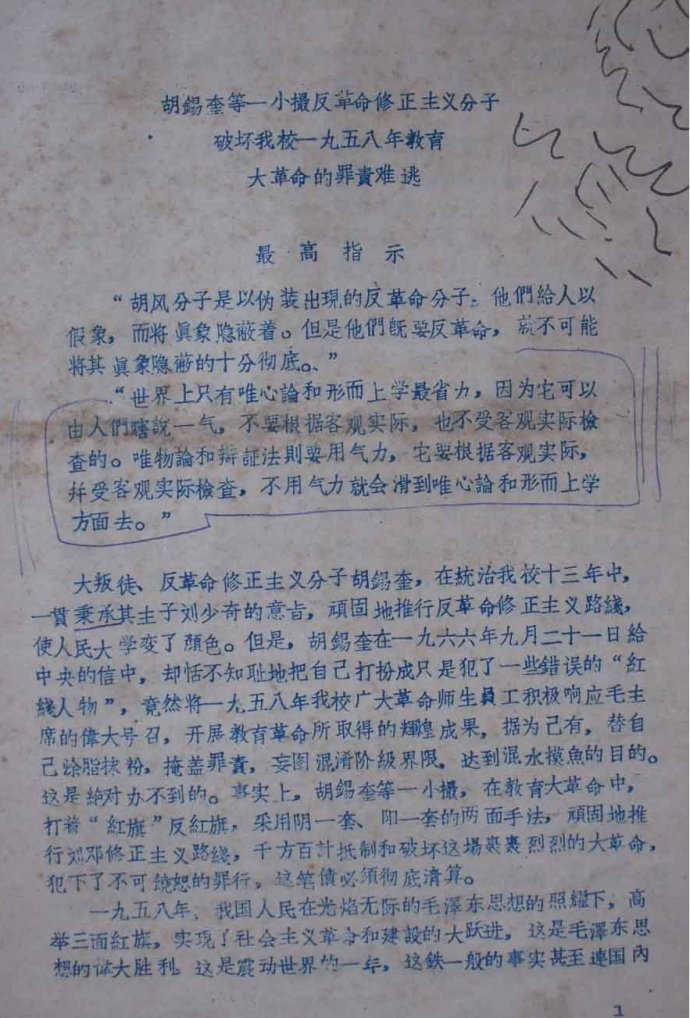 胡錫奎等一小撮反革命修正主义分子
破坏我校一九五八年教育
大革命的罪責难逃
最高指示
“胡风分子是以伪装出現的反革命分子。他們給人以
假象，而将眞象隐蔽着。但是他們旣要反革命，就不可能
将其眞象隐蔽的十分彻底。”
“世界上只有唯心論和形而上学最省力，因为它可以
由人們瞎說一气，不要根据客观实际，也不受客观实际檢
查的。唯物論和辯証法則要用气力，它要根据客观实际，
幷受客观实际檢查，不用气力就会滑到唯心論和形而上学
方面去。”
大叛徒、反革命修正主义分子胡錫奎，在統治我校十三年中，
一貫秉承其主子刘少奇的意旨，頑固地推行反革命修正主义路綫，
使人民大学变了顏色。但是，胡錫奎在一九六六年九月二十一日給
中央的信中，却恬不知耻地把自己打扮成只是犯了一些錯误的“紅
綫人物”，竟然将一九五八年我校广大革命师生員工积极响应毛主
席的偉大号召，开展教育革命所取得的輝煌成果，据为己有，替自
己涂脂抹粉，掩盖罪責，妄图混淆阶級界限，达到混水摸魚的目的。
这是絕对办不到的。事实上，胡錫奎等一小撮，在教育大革命中，
打着“紅旗”反紅旗，采用阴一套、阳一套的两面手法，頑固地推
行刘邓修正主义路綫，千方百計抵制和破坏这場轰轰烈烈的大革命，
犯下了不可饒恕的罪行。这笔債必須彻底清算。
一九五八年，我国人民在光焰无际的毛澤东思想的照耀下，高
举三面紅旗，实現了社会主义革命和建設的大跃进，这是毛澤东思
想的偉大胜利，这是震动世界的一年，这鉄一般的事实甚至連国內
1